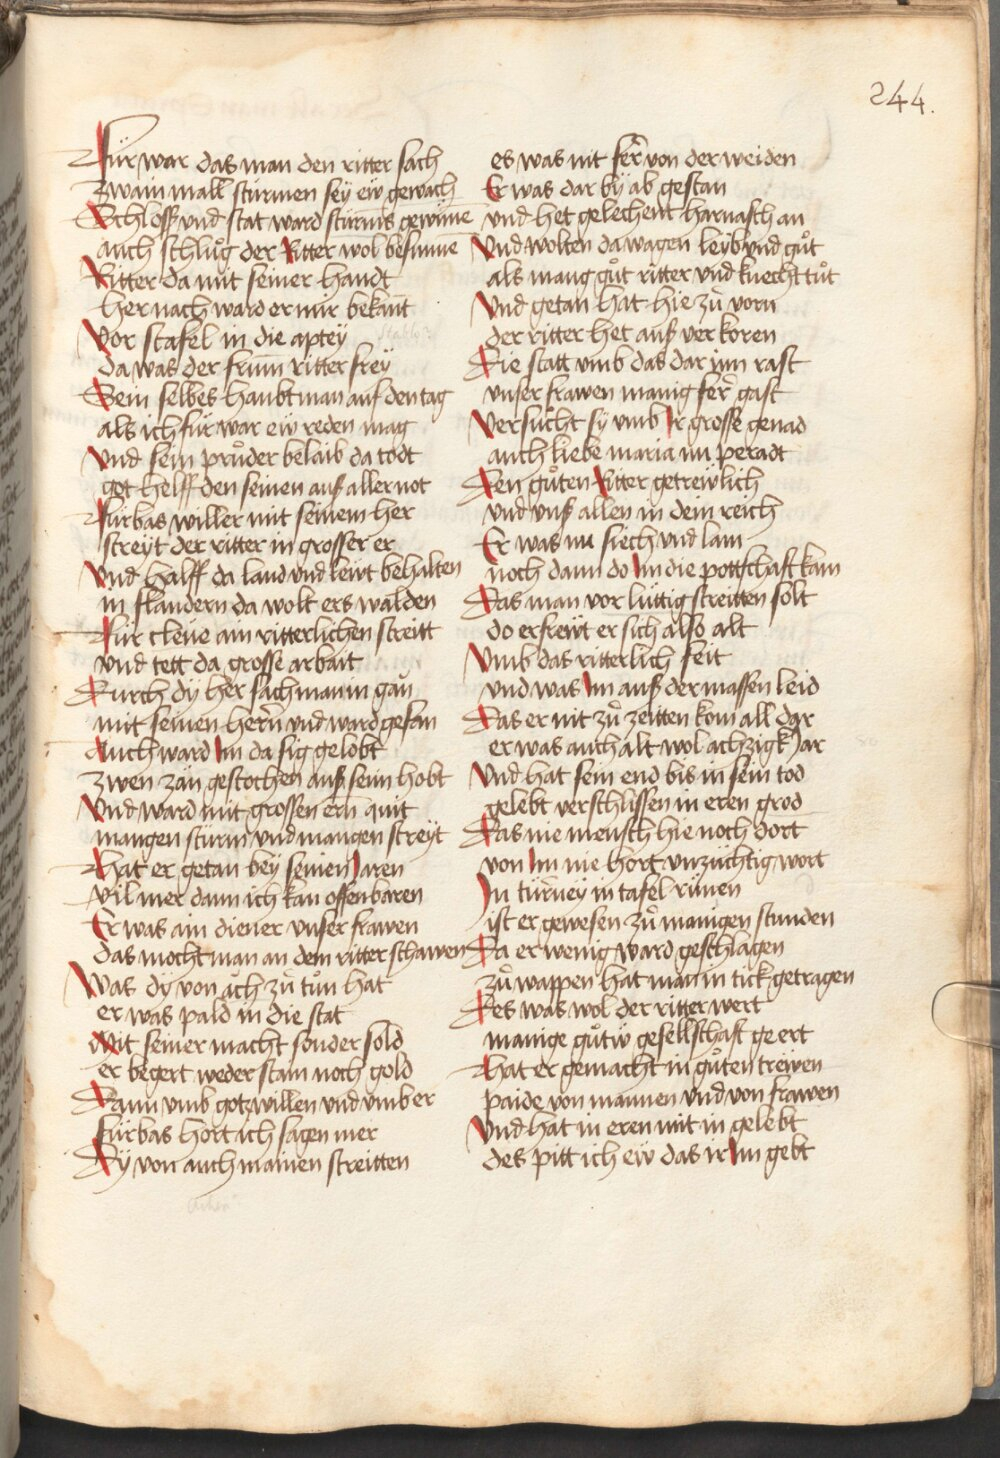 244.
Für war das man den ritter sach
Zwain mall stürmen sey ew gewach
Schloss vnd stat ward stürms gewūne
auch schlůg der Ritter wol besunnē
Ritter da mit seiner handt
her nach ward er mir bekant
Vor stafel in die aptey
da was der frum ritter frey
Sein selbes haubtman auf den tag
als ich für war ew reden mag
Vnd sein průder belaib da todt
got helff den seinen auß aller not
Fürbas willer mit seinem her
streyt der ritter in grosser er
Vnd halff da land vnd lewt behalten
in flandern da wolt ers walden
Für cleue ain ritterlichen streitt
vnd tett da grosse arbait
Durch dy her sach man in gan
mit seinen hern vnd ward gefan
Auch ward Im da sig gelobt
zwen zän gestochen auß seim hobt
Vnd ward mit grossen ern quit
mangen sturm vnd mangen streyt
Hat er getan bey seinen Jaren
vil mer dann ich kan offenbaren
Er was ain diener vnser frawen
das mocht man an dem ritter schawen
Was dy von ach zů tůn hat
er was pald in die stat
Mit seiner macht sonder sold
er begert weder stain noch gold
Dann vmb gotz willen vnd vmb er
fürbas hort ich sagen mer
Dy von auch mainen streitten
es was nit fer von der weiden
Er was dar by ab gestan
vnd het gelechent harnasch an
Vnd wolten da wagen leyb vnd gůt
als mang gůt ritter vnd knecht tůt
Vnd getan hat hie zů vorn
der ritter het auß verkoren
Die statt vmb das dar inn rast
vnser frawen manig fer gast
Versůcht sy vmb Ir grosse genad
auch liebe maria nu peradt
Den gůten Ritter getrewlich
vnd vnß allen in dein reich
Er was nu siech vnd lam
noch dann do Im die pottschaft kam
Das man vor lüttig streitten solt
do erfrewt er sich also alt
Vmb das ritterlich seit
vnd was Im auß der massen leid
Das er nit zů zeitten kom all dar
er was auch alt wol achzigk Jar
Vnd hat sein end bis in sein tod
gelebt verschlissen in eren grod
Das nie mensch hie noch dort
von Im nie hort vnzüchtig wort
In turney in tafel rünen
ist er gewesen zů manigen stunden
Da er wenig ward geschlagen
zů wappen hat man in tick getragen
Des was wol der ritter wert
manige gůtw gesellschaft geert
Hat er gemacht in gůten trewen
paide von mannen vnd von frawen
Vnd hat in eren mit in gelebt
des pitt ich ew das ir Im gebt